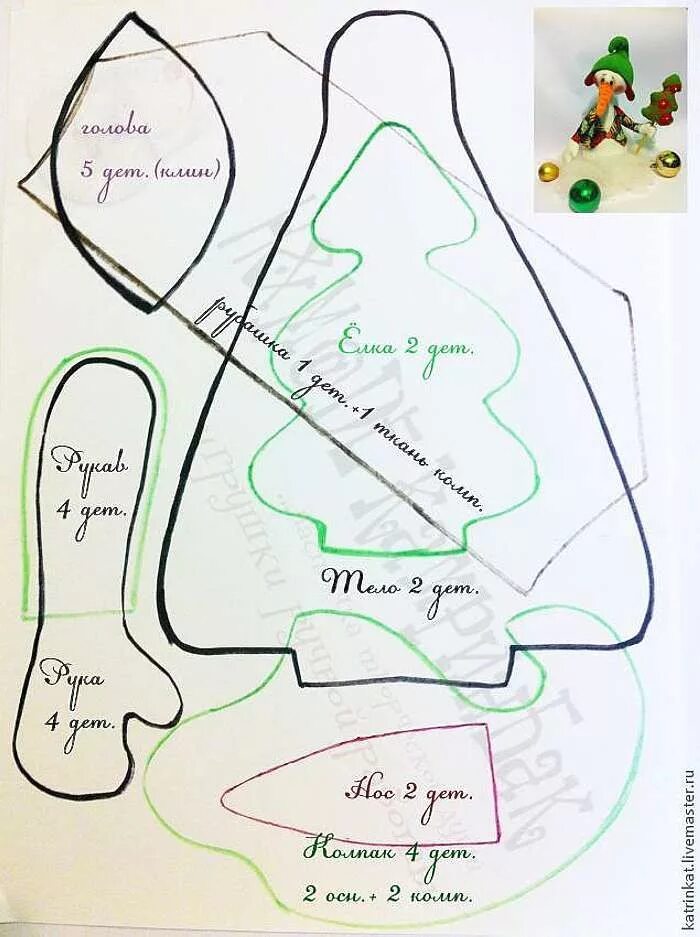 голова
5 дет. (клин)
рубашка 1 дет. +1 ткань комп.
Ёлка 2 дет.
Рукав
4 дет.
Тело 2 дет.
Рука
4 дет.
Нос 2 дет.
Колпак 4 дет.
2 осн. + 2 комп.
katrinkat.livemaster.ru